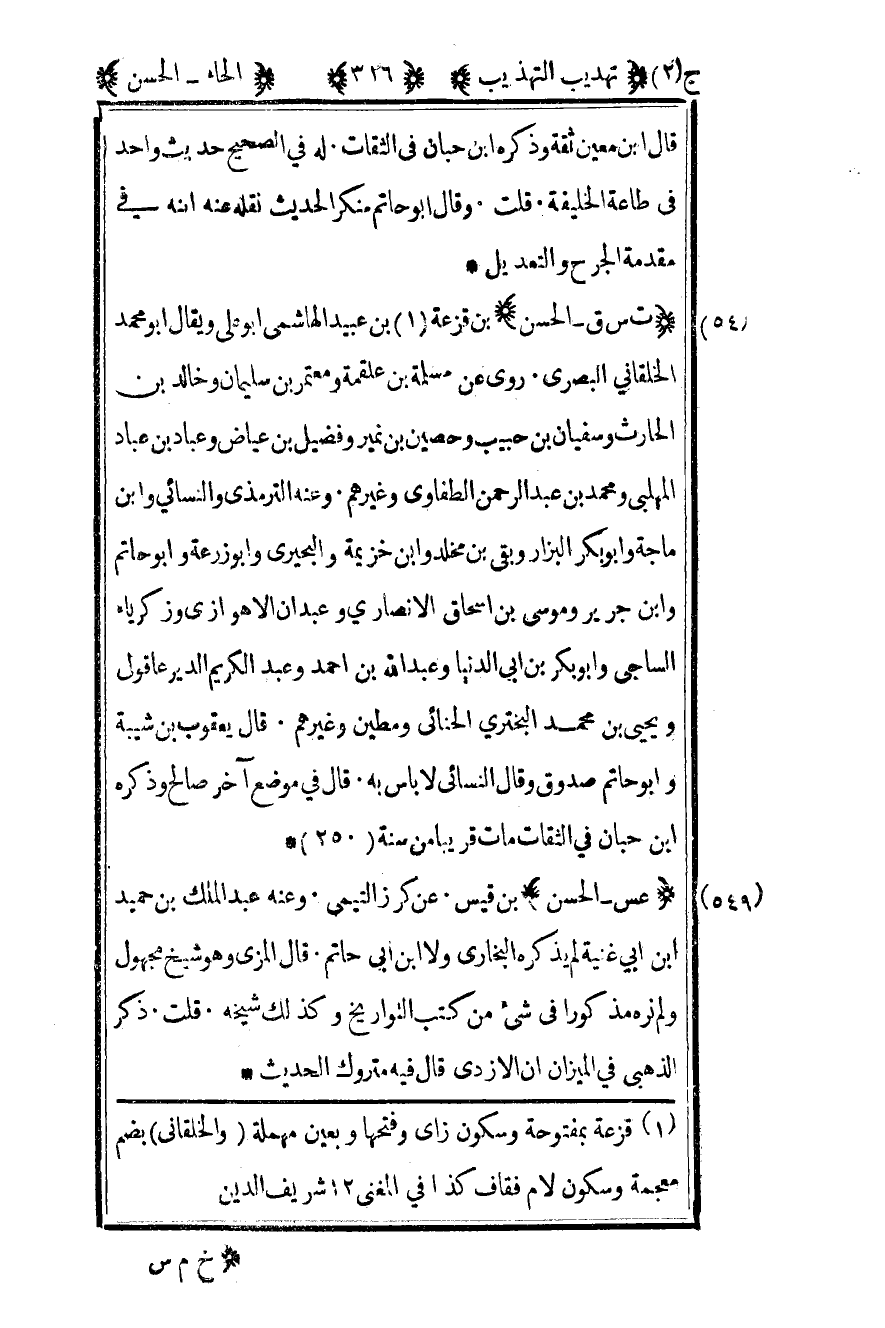 ج(٢) ﴿ تهذيب التهذيب ﴾ ﴿٣١٦﴾ ﴿ الحاء - الحسن ﴾
قال ابن معين ثقة وذكره ابن حبان فى الثقات ٠ له في الصحيح حديث واحد
فى طاعة الخليفة ٠ قلت ٠ وقال ابوحاتم منكر الحديث نقله عنه ابنه في
مقدمة الجرح والتعديل *
(٥٤ ﴿ ت س ق ــ الحسن ﴾ بن قزعة (١) بن عبيد الهاشمى ابو على ويقال ابو محمد
الخلقاني البصرى ٠ روى عن مسلمة بن علقمة ومعتمر بن سليمان وخالد بن
الحارث وسفيان بن حبيب وحصين بن نمير وفضيل بن عياض وعباد بن عباد
المهلبي ومحمد بن عبد الرحمن الطفاوى وغيرهم ٠ وعنه الترمذى والنسائي وابن
ماجة وابوبكر البزار وبقى بن مخلد وابن خزيمة والبحيرى وابوزرعة وابوحاتم
وابن جرير وموسى بن اسحاق الانصاري وعبدان الاهوازى وزكرياء
الساجى وابوبكر بن ابي الدنيا وعبدالله بن احمد وعبد الكريم الديرعاقول
ويحيى بن محمد البختري الحنائى ومطين وغيرهم ٠ قال يعقوب بن شيبة
وابوحاتم صدوق وقال النسائى لا باس به ٠ قال في موضع آخر صالح وذكره
ابن حبان في الثقات مات قريبا من سنة (٢٥٠) *
(٥٤٩) ﴿ عس ــ الحسن ﴾ بن قيس ٠ عن كرز التيمي ٠ وعنه عبد الملك بن حميد
ابن ابي غنية لم يذكره البخارى ولا ابن ابي حاتم ٠ قال المزى وهو شيخ مجهول
ولم نره مذكورا فى شئ من كتب التواريخ وكذلك شيخه ٠ قلت ٠ ذكر
الذهبى في الميزان ان الازدى قال فيه متروك الحديث *
(١) قزعة بمفتوحة وسكون زاى وفتحها وبعين مهملة (والخلقانى) بضم
معجمة وسكون لام فقاف كذا في المغنى ١٢ شريف الدين
﴿ خ م س